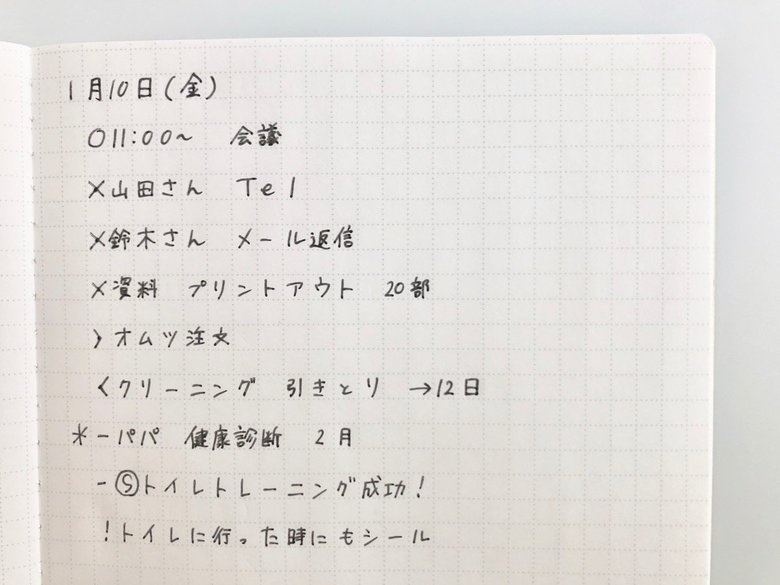 1月10日(金)
○11:00~ 会議
×山田さん Tel
×鈴木さん メール返信
×資料 プリントアウト 20部
〉オムツ注文
〈クリーニング 引きとり →12日
*-パパ 健康診断 2月
-Ⓢトイレトレーニング成功!
!トイレに行った時にもシール